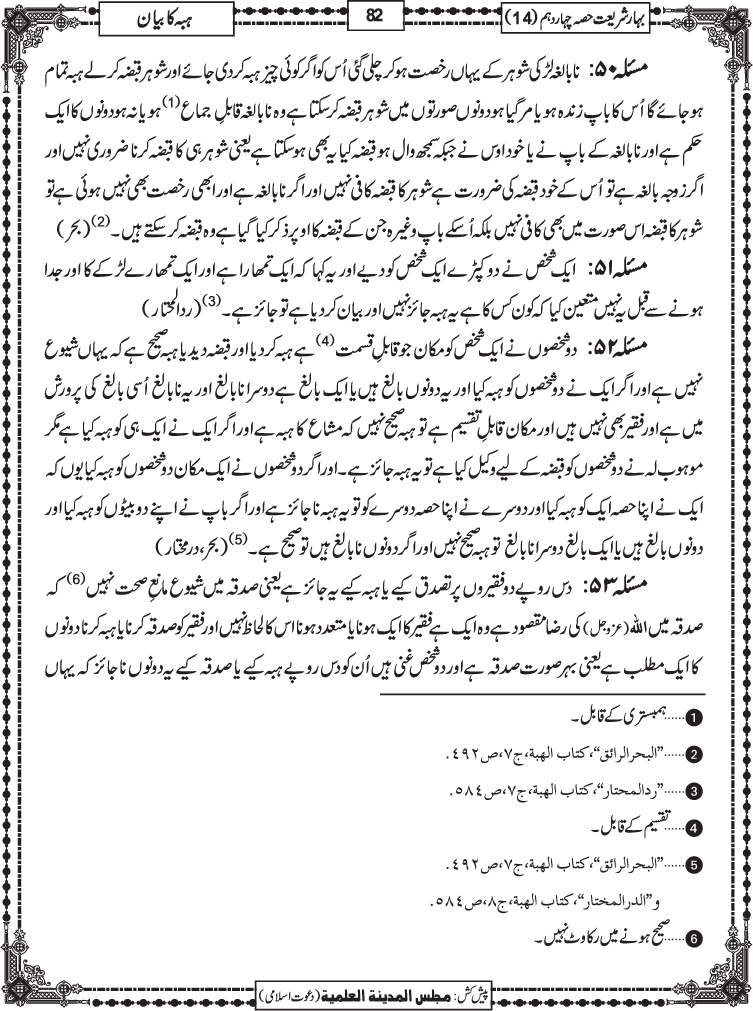 بہار شریعت حصہ چہاردہم (14)
82
ہبہ کا بیان
مسئلہ ۵۰: نابالغہ لڑکی شوہر کے یہاں رخصت ہو کر چلی گئی اُس کو اگر کوئی چیز ہبہ کردی جائے اور شوہر قبضہ کرلے ہبہ تمام
ہو جائے گا اُس کا باپ زندہ ہو یا مر گیا ہو دونوں صورتوں میں شوہر قبضہ کر سکتا ہے وہ نابالغہ قابلِ جماع (1) ہو یا نہ ہو دونوں کا ایک
حکم ہے اور نابالغہ کے باپ نے یا خود اوس نے جبکہ سمجھ وال ہو قبضہ کیا یہ بھی ہو سکتا ہے یعنی شوہر ہی کا قبضہ کرنا ضروری نہیں اور
اگر زوجہ بالغہ ہے تو اُس کے خود قبضہ کی ضرورت ہے شوہر کا قبضہ کافی نہیں اور اگر نابالغہ ہے اور ابھی رخصت بھی نہیں ہوئی ہے تو
شوہر کا قبضہ اس صورت میں بھی کافی نہیں بلکہ اُسکے باپ وغیرہ جن کے قبضہ کا اوپر ذکر کیا گیا ہے وہ قبضہ کر سکتے ہیں۔ (2) (بحر)
مسئلہ ۵۱: ایک شخص نے دو کپڑے ایک شخص کو دیے اور یہ کہا کہ ایک تمھارا ہے اور ایک تمھارے لڑکے کا اور جدا
ہونے سے قبل یہ نہیں متعین کیا کہ کون کس کا ہے یہ ہبہ جائز نہیں اور بیان کردیا ہے تو جائز ہے۔ (3) (ردالمحتار)
مسئلہ ۵۲: دو شخصوں نے ایک شخص کو مکان جو قابلِ قسمت (4) ہے ہبہ کر دیا اور قبضہ دیدیا ہبہ صحیح ہے کہ یہاں شیوع
نہیں ہے اور اگر ایک نے دو شخصوں کو ہبہ کیا اور یہ دونوں بالغ ہیں یا ایک بالغ ہے دوسرا نابالغ اور یہ نابالغ اُسی بالغ کی پرورش
میں ہے اور فقیر بھی نہیں ہیں اور مکان قابلِ تقسیم ہے تو ہبہ صحیح نہیں کہ مشاع کا ہبہ ہے اور اگر ایک نے ایک ہی کو ہبہ کیا ہے مگر
موہوب لہ نے دو شخصوں کو قبضہ کے لیے وکیل کیا ہے تو یہ ہبہ جائز ہے۔ اور اگر دو شخصوں نے ایک مکان دو شخصوں کو ہبہ کیا یوں کہ
ایک نے اپنا حصہ ایک کو ہبہ کیا اور دوسرے نے اپنا حصہ دوسرے کو تو یہ ہبہ ناجائز ہے اور اگر باپ نے اپنے دو بیٹوں کو ہبہ کیا اور
دونوں بالغ ہیں یا ایک بالغ دوسرا نابالغ تو ہبہ صحیح نہیں اور اگر دونوں نابالغ ہیں تو صحیح ہے۔ (5) (بحر، درمختار)
مسئلہ ۵۳: دس روپے دو فقیروں پر تصدق کیے یا ہبہ کیے یہ جائز ہے یعنی صدقہ میں شیوع مانعِ صحت نہیں (6) کہ
صدقہ میں اللہ (عزوجل) کی رضا مقصود ہے وہ ایک ہے فقیر کا ایک ہونا یا متعدد ہونا اس کا لحاظ نہیں اور فقیر کو صدقہ کرنا یا ہبہ کرنا دونوں
کا ایک مطلب ہے یعنی بہر صورت صدقہ ہے اور دو شخص غنی ہیں اُن کو دس روپے ہبہ کیے یا صدقہ کیے یہ دونوں ناجائز کہ یہاں
1 ......ہمبستری کے قابل۔
2 ......"البحرالرائق"، کتاب الھبة، ج٧، ص٤٩٢.
3 ......"ردالمحتار"، کتاب الھبة، ج٧، ص٥٨٤.
4 ......تقسیم کے قابل۔
5 ......"البحرالرائق"، کتاب الھبة، ج٧، ص٤٩٢.
و"الدرالمختار"، کتاب الھبة، ج٨، ص٥٨٤.
6 ......صحیح ہونے میں رکاوٹ نہیں۔
پیش کش: مجلس المدینة العلمیة (دعوت اسلامی)